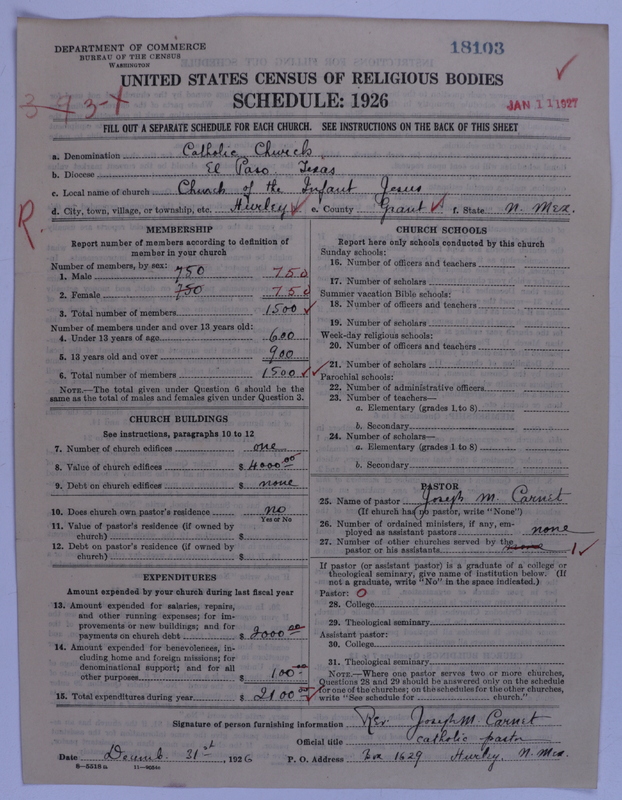 DEPARTMENT OF COMMERCE
BUREAU OF THE CENSUS
WASHINGTON
18103
UNITED STATES CENSUS OF RELIGIOUS BODIES
SCHEDULE: 1926
3-93-1
JAN 11 1927
FILL OUT A SEPARATE SCHEDULE FOR EACH CHURCH. SEE INSTRUCTIONS ON THE BACK OF THIS SHEET
a. Denomination Catholic Church
b. Diocese El Paso, Texas
c. Local name of church Church of the Infant Jesus
d. City, town, village, or township, etc. Hurley e. County Grant f. State N. Mex.
R.
MEMBERSHIP
Report number of members according to definition of
member in your church
Number of members, by sex:
1. Male 750 750
2. Female 750 750
3. Total number of members 1500
Number of members under and over 13 years old:
4. Under 13 years of age 600
5. 13 years old and over 900
6. Total number of members 1500
NOTE.—The total given under Question 6 should be the
same as the total of males and females given under Question 3.
CHURCH BUILDINGS
See instructions, paragraphs 10 to 12
7. Number of church edifices one
8. Value of church edifices $ 4000.00
9. Debt on church edifices $ none
10. Does church own pastor's residence no
Yes or No
11. Value of pastor's residence (if owned by
church) $
12. Debt on pastor's residence (if owned by
church) $
EXPENDITURES
Amount expended by your church during last fiscal year
13. Amount expended for salaries, repairs,
and other running expenses; for im-
provements or new buildings; and for
payments on church debt $ 2000.00
14. Amount expended for benevolences, in-
cluding home and foreign missions; for
denominational support; and for all
other purposes $ 100.00
15. Total expenditures during year $ 2100.00
CHURCH SCHOOLS
Report here only schools conducted by this church
Sunday schools:
16. Number of officers and teachers
17. Number of scholars
Summer vacation Bible schools:
18. Number of officers and teachers
19. Number of scholars
Week-day religious schools:
20. Number of officers and teachers
21. Number of scholars
Parochial schools:
22. Number of administrative officers
23. Number of teachers—
a. Elementary (grades 1 to 8)
b. Secondary
24. Number of scholars—
a. Elementary (grades 1 to 8)
b. Secondary
PASTOR
25. Name of pastor Joseph M. Carnet
(If church has no pastor, write "None")
26. Number of ordained ministers, if any, em-
ployed as assistant pastors none
27. Number of other churches served by the
pastor or his assistants none 1
If pastor (or assistant pastor) is a graduate of a college or
theological seminary, give name of institution below. (If
not a graduate, write "No" in the space indicated.)
Pastor: O
28. College
29. Theological seminary
Assistant pastor:
30. College
31. Theological seminary
NOTE.—Where one pastor serves two or more churches,
Questions 28 and 29 should be answered only on the schedule
for one of the churches; on the schedules for the other churches,
write "See schedule for church."
Signature of person furnishing information Rev Joseph M. Carnet
Official title catholic pastor
Date Decemb. 31st, 1926 P. O. Address Box 1629 Hurley, N. Mex.
8—5318a